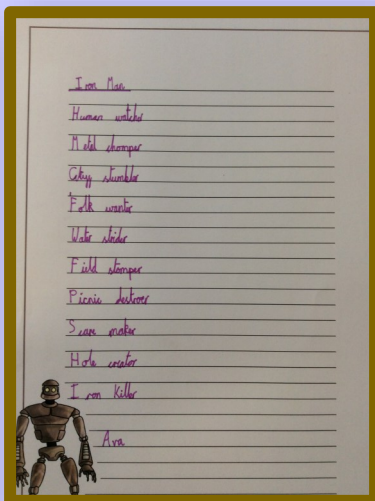 Iron Man
Human watcher
Metal chomper
stumbler
Folk wanter
Water strider
Field stomper
Picnic destroer
Scare maker
Hole creator
Iron Killer
Ava